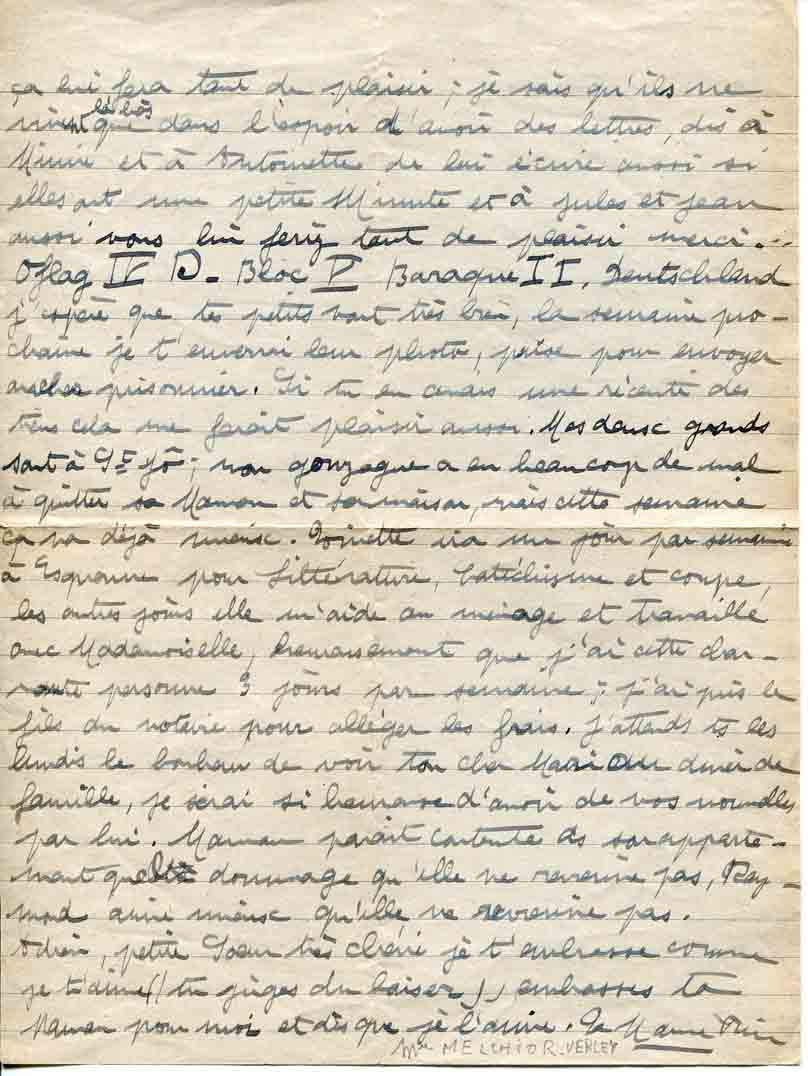 ça lui fera tant de plaisir ; je sais qu'ils ne
vivent là bas que dans l'espoir d'avoir des lettres, dis à
Mimie et à Antoinette de lui écrire aussi si
elles ont une petite Minute et à Jules et Jean
aussi vous lui feriez tant de plaisir merci...
Oflag IV D - Bloc V Baraque II, Deutschland
j'espère que tes petits vont très bien, la semaine pro-
chaine je t'enverrai leur photo, prise pour envoyer
au cher prisonnier. Si tu en avais une récente des
tiens cela me ferait plaisir aussi. Mes deux grands
sont à St Jô ; mon gonzague a eu beaucoup de mal
à quitter sa Maman et sa maison, mais cette semaine
ça va déjà mieux. Toinette ira un jour par semaine
à Esquermes pour Littérature, Catéchisme et coupe,
les autres jours elle m'aide au ménage et travaille
avec Mademoiselle, heureusement que j'ai cette char-
mante personne 3 jours par semaine ; j'ai pris le
fils du notaire pour alléger les frais. J'attends ts les
lundis le bonheur de voir ton cher Mari au diner de
famille, je serai si heureuse d'avoir de vos nouvelles
par lui. Maman parait contente de son apparte-
ment dommage qu'elle ne revienne pas, Ray-
mond aime mieux qu'elle ne revienne pas.
Adieu, petite Soeur très chérie je t'embrasse comme
je t'aime (/tu juges du baiser/), embrasses ta
Maman pour moi et dis que je l'aime. Ta Marie
Mme MELCHIOR-VERLEY